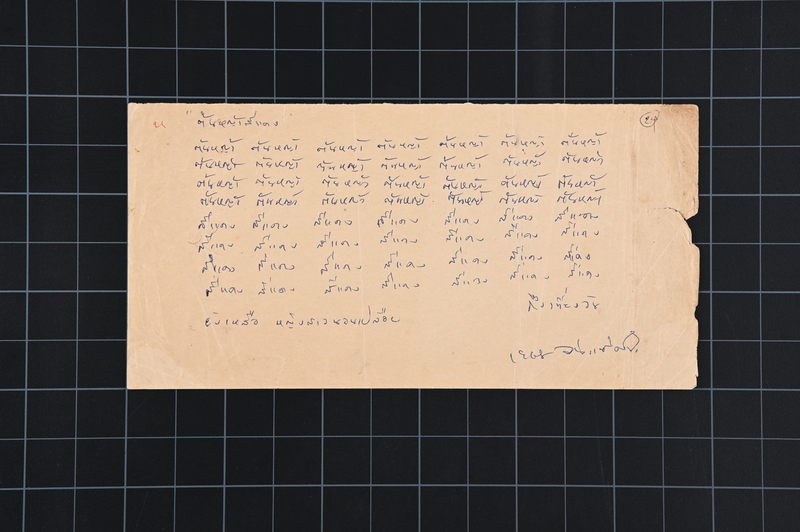 " ต้นหญ้าสีแดง
24
ต้นหญ้า ต้นหญ้า ต้นหญ้า ต้นหญ้า ต้นหญ้า ต้นหญ้า ต้นหญ้า
ต้นหญ้า ต้นหญ้า ต้นหญ้า ต้นหญ้า ต้นหญ้า ต้นหญ้า ต้นหญ้า
ต้นหญ้า ต้นหญ้า ต้นหญ้า ต้นหญ้า ต้นหญ้า ต้นหญ้า ต้นหญ้า
ต้นหญ้า ต้นหญ้า ต้นหญ้า ต้นหญ้า ต้นหญ้า ต้นหญ้า ต้นหญ้า
สีแดง สีแดง สีแดง สีแดง สีแดง สีแดง สีแดง
สีแดง สีแดง สีแดง สีแดง สีแดง สีแดง สีแดง
สีแดง สีแดง สีแดง สีแดง สีแดง สีแดง สีแดง
สีแดง สีแดง สีแดง สีแดง สีแดง สีแดง สีแดง
ถึงเที่ยงวัน
ยังเหลือ หญิงสาวนอนเปลือย